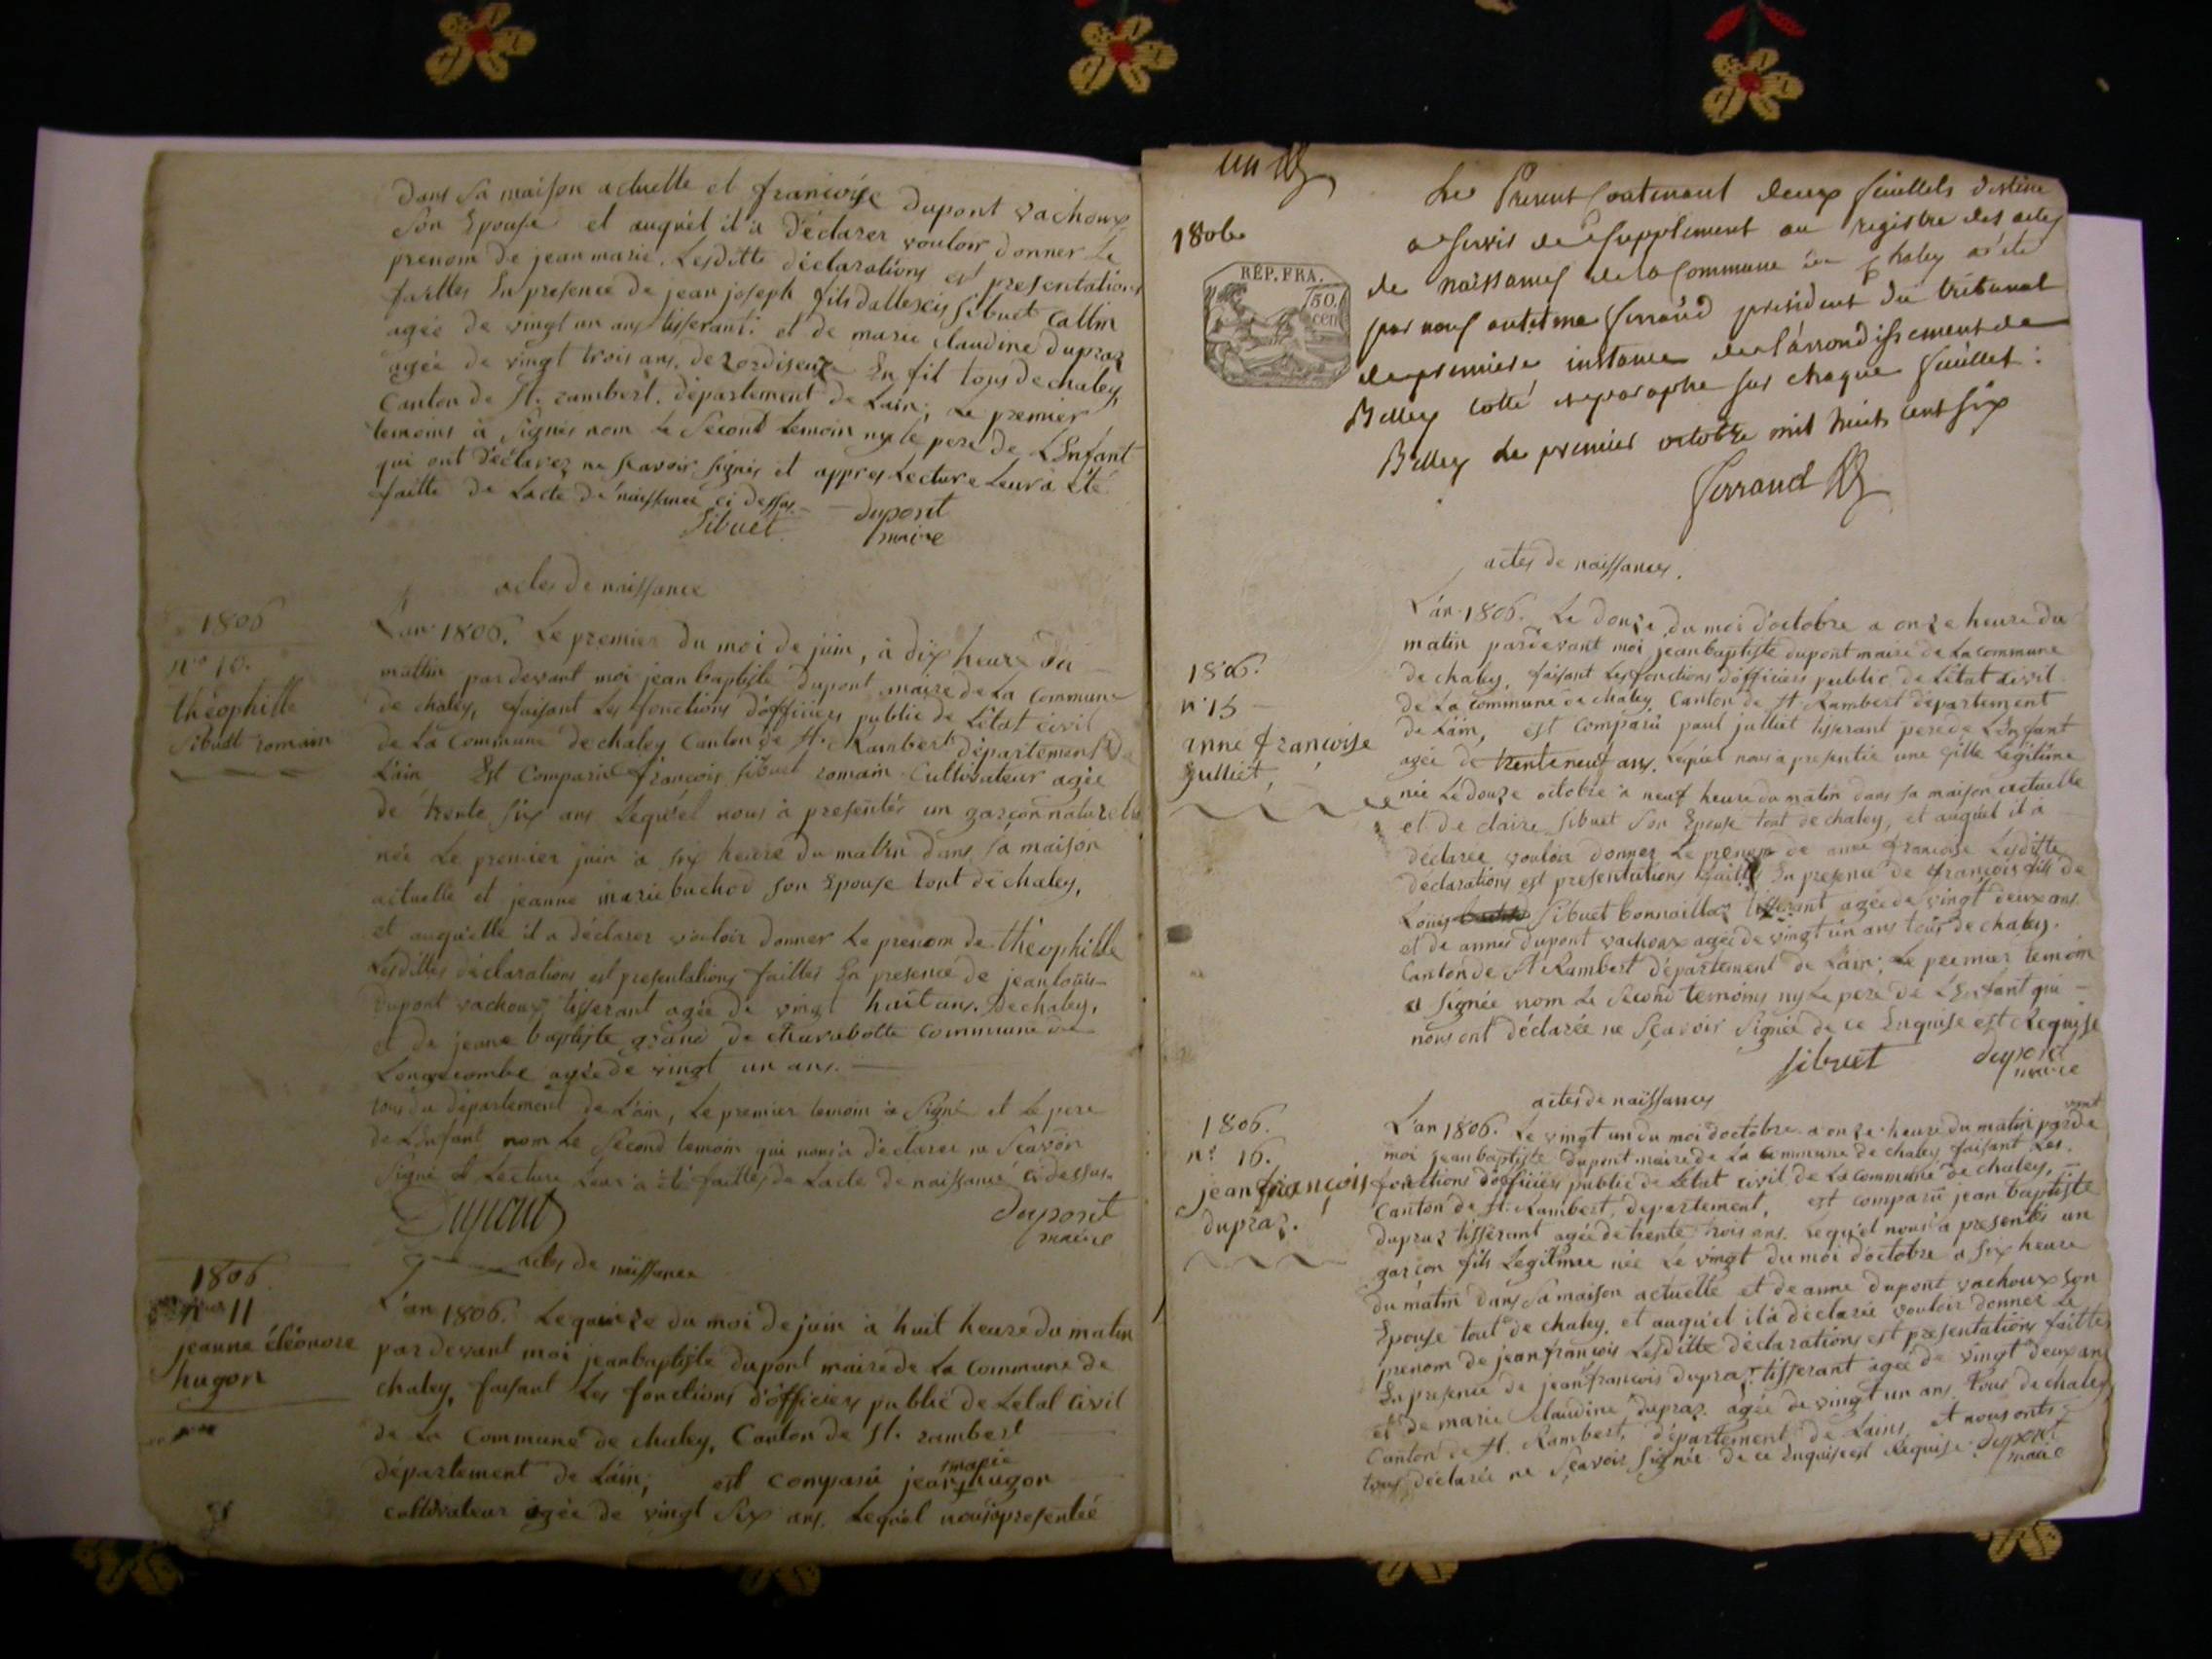 Dans sa maison actuelle et francoise dupont vachoux
son Epouse et auquél il à déclarer vouloir donner le
prenom de jean marie. Lesditte déclarations est presentations
faittes En presence de jean joseph fils dallexis sibuet callin
agée de vingt un ans tisserant. et de marie claudine dupraz
agée de vingt trois ans. de En fil tous de chaley,
Canton de St. rambert. département de Lain; Le premier
temoins à signér nom Le Second temoin ny le pere de LEnfant
qui ont déclarez ne scavoir signér et appres Lecture Leur à été
faitte de Lacte de naissance ci dessus.
Sibuet dupont
maire
actes de naissance
1806
n° 10.
théophille
Sibuet romain
Lan 1806. Le premier du moi de juin, à dix heure du
mattin pardevant moi jean baptiste dupont maire de La Commune
de chaley, faisant Les fonctions d'officiers public de L'état civil
de La Commune de chaley Canton de St. Rambert département de
L'ain Est Comparu francois sibuet romain Cultivateur agée
de trente six ans Lequ'el nous à presentér un garcon naturel
née Le premier juin à six heure du mattin dans sa maison
actuelle et jeanne marie buchod son Epouse tout de chaley,
et auqu'elle il a déclarer vouloir donner Le prenom de théophille
Lesdittes déclarations est presentations faittes En presence de jean louis
dupont vachoux tisserant agée de vingt huit ans. De chaley,
et de jeane baptiste grand de charabotte Commune de
Longecombe agée de vingt un ans.
tous du département de L'ain, Le premier temoin à Signé et Le pere
de LEnfant nom Le Second temoin qui nous à déclarer ne Scavoir
Signé et Lecture Leur à été faittes de Lacte de naissance ci dessus.
Dupont dupont
maire
actes de naissance
1806
n° 11
jeanne éléonore
hugon
L'an 1806. Le quinze du moi de juin à huit heure du matin
pardevant moi jean baptiste dupont maire de La Commune de
chaley, faisant Les fonctions d'officiers public de Letat civil
de La Commune de chaley, Canton de St. rambert
département de Láin; est comparu jean marie hugon
cultivateur agée de vingt six ans. Lequél nous à presentée
1806
RÉP. FRA.
50
cen
Le Present Contenant deux feuillets destiné
a servir de supplement au registre des actes
de naissances de la Commune de Chaley a été
par nous antelme ferrand president du tribunal
de premiere instance de l'arrondissement de
Belley cotté et paraphé sur chaque feuillet:
Belley le premier octobre mil huit cent six
ferrand
actes de naissances.
1806.
n° 15
anne françoise
Julliet
L'an 1806. Le douze du moi d'octobre a onze heure du
matin pardevant moi jean baptiste dupont maire de La commune
de chaley, faisant Les fonctions d'officiers public de L'état civil
de La commune de chaley Canton de St Rambert département
de Láin, est comparü paul julliet tisserant pere de LEnfant
agée de trente neuf ans. Lequél nous à presentée une fille Legitime
née Le douze octobre à neuf heure du matin dans sa maison actuelle
et de claire sibuet son Epouse tout de chaley, et auquél il à
déclarée vouloir donner Le prenom de anne francoise Lesditte
déclarations est presentations faitte En presence de francois fils de
Loüis Sibuet bonnaillar tisserant agée de vingt deux ans
et de annes dupont vachoux agée de vingt un ans tous de chaley.
Canton de St Rambert département de Lain; Le premier temoin
a signée nom Le Second temoins ny Le pere de LEnfant qui
nous ont déclarée ne Sçavoir signée de ce Enquise est Requise
Sibuet dupont
maire
actes de naissances
1806.
n° 16.
jean françois
dupraz.
L'an 1806. Le vingt un du moi d'octobre a onze heure du matin parde
vant
moi jean baptiste dupont maire de La commune de chaley faisant Les
fonctions d'officiers public de Létat civil de La commune de chaley,
Canton de St. Rambert, departement, est comparü jean baptiste
dupraz tisserant agée de trente trois ans. Lequ'el nous à presentés un
garcon fils Legitime née Le vingt du moi d'octobre a six heure
du matin dans sa maison actuelle et de anne dupont vachoux son
Epouse tout de chaley, et auqu'el il à déclarée vouloir donner Le
prenom de jean francois Lesditte déclarations est presentations faittes
En presence de jean francois dupraz tisserant agée de vingt deux ans
et de marie claudine dupraz. agée de vingt un ans Tous de chaley
Canton de St. Rambert, département de Lains, et nous onts
tous déclarée ne Sçavoir Signée de ce Enquise est Requise dupont
maire